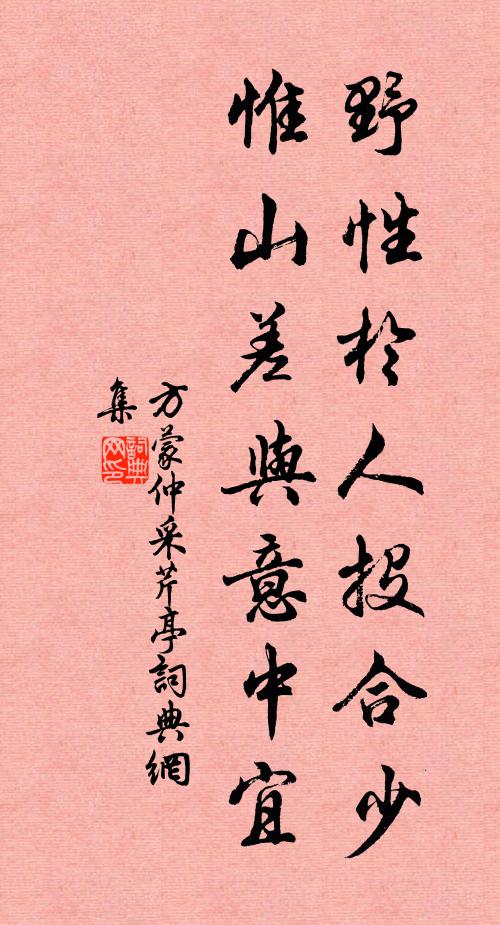 野性於人投合少
惟山差與意中宜
方蒙仲采芹亭詞典網
集
詞典網印